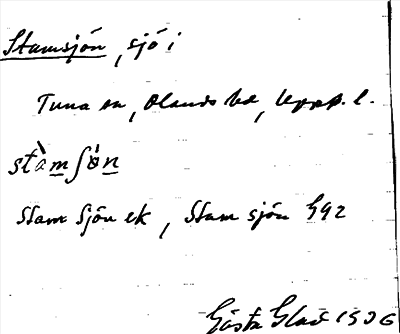 Stamsjön, sjö i
Tuna sn, Olands hd, Upps. l.
stàmʃö̀n
Stam Sjön ek, Stam sjön G42
Gösta Glad 1906